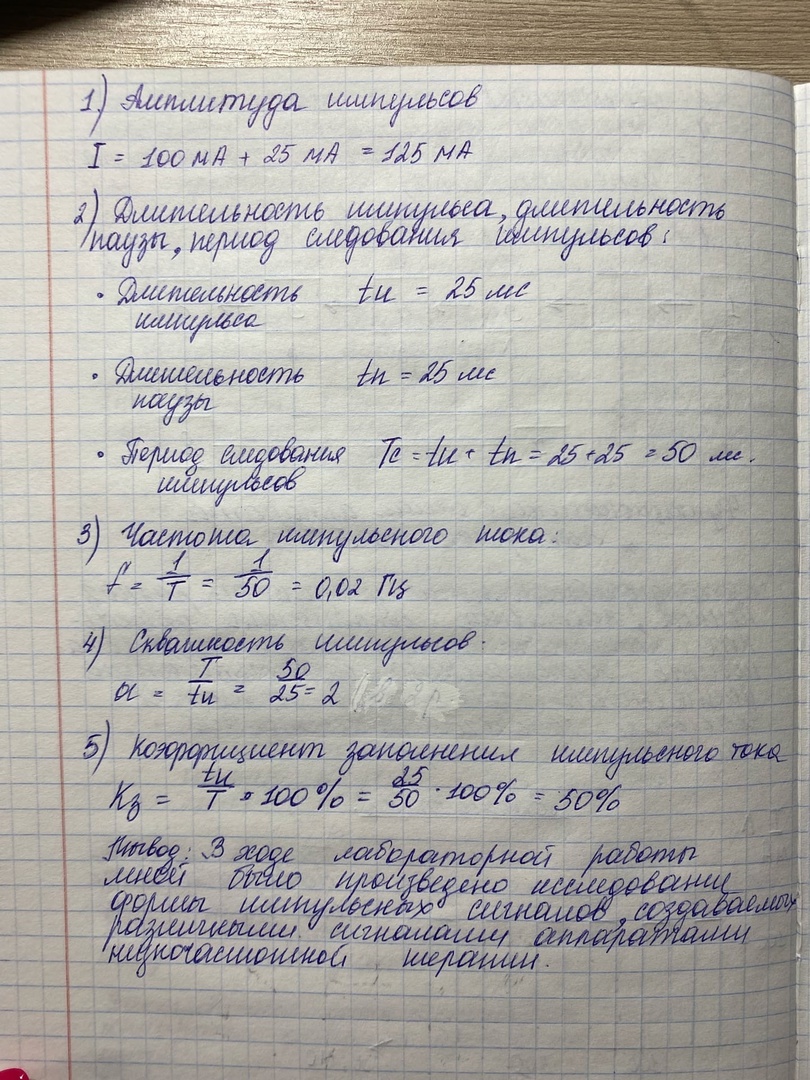 1) Амплитуда импульсов
I = 100 мА + 25 мА = 125 мА
2) Длительность импульса, длительность
паузы, период следования импульсов:
• Длительность tи = 25 мс
импульса
• Длительность tп = 25 мс
паузы
• Период следования Tс = tи + tп = 25+25 = 50 мс.
импульсов
3) Частота импульсного тока:
f = 1/T = 1/50 = 0,02 Гц
4) Скважность импульсов:
α = T/tи = 50/25 = 2
5) Коэффициент заполнения импульсного тока
Kз = tи/T • 100% = 25/50 · 100% = 50%
Вывод: В ходе лабораторной работы
мной было произведено исследование
формы импульсных сигналов, создаваемых
различными сигналами аппаратами
низкочастотной терапии.